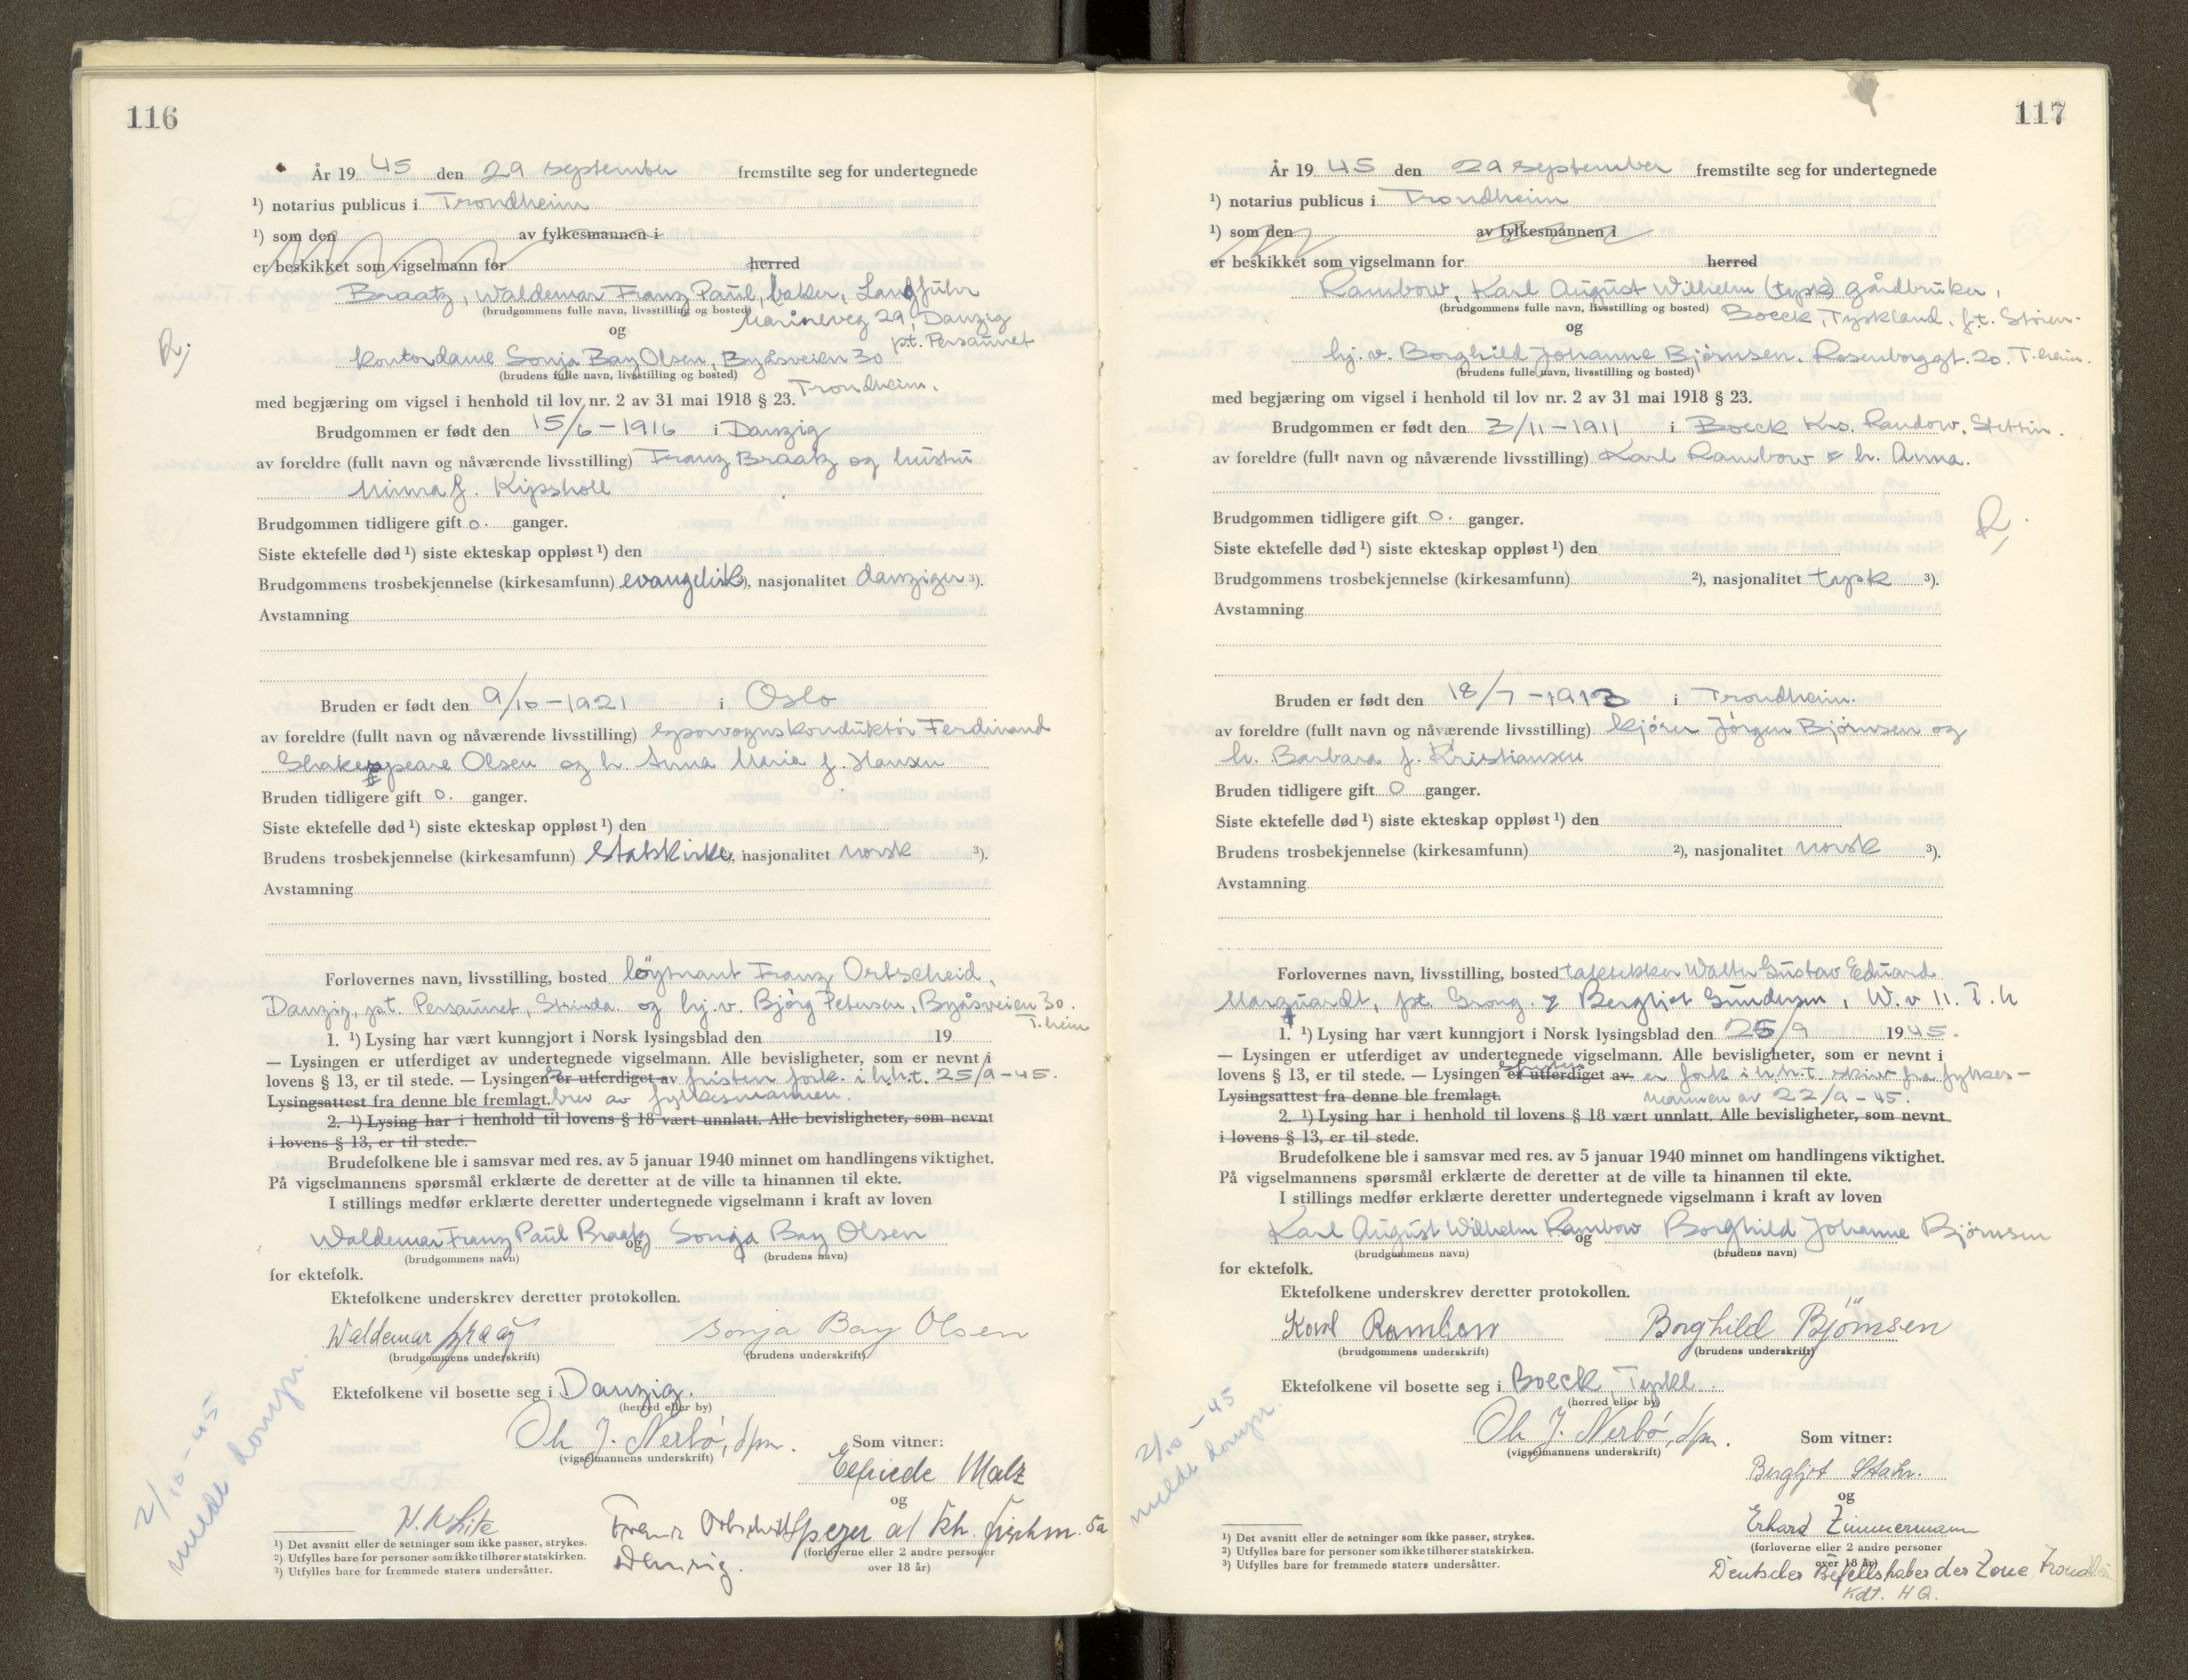 116
År 19 45 den 29 september fremstilte seg for undertegnede
¹) notarius publicus i Trondheim
¹) som den av fylkesmannen i
er beskikket som vigselmann for herred
Braatz, Waldemar Franz Paul, baker, Langfuhr
(brudgommens fulle navn, livsstilling og bosted)
Marineveg 29, Danzig
og
pt. Persaunet
kontordame Sonja Bay Olsen, Byåsveien 30
(brudens fulle navn, livsstilling og bosted)
Trondheim.
med begjæring om vigsel i henhold til lov nr. 2 av 31 mai 1918 § 23.
Brudgommen er født den 15/6-1916 i Danzig
av foreldre (fullt navn og nåværende livsstilling) Franz Braatz og hustru
Minna f. Kipsholl
Brudgommen tidligere gift 0. ganger.
Siste ektefelle død ¹) siste ekteskap oppløst ¹) den
Brudgommens trosbekjennelse (kirkesamfunn) evangelisk ²), nasjonalitet danziger ³).
Avstamning
Bruden er født den 9/10-1921 i Oslo
av foreldre (fullt navn og nåværende livsstilling) sporvognskonduktör Ferdinand
Shakespeare Olsen og h. Anna Maria f. Hansen
Bruden tidligere gift 0. ganger.
Siste ektefelle død ¹) siste ekteskap oppløst ¹) den
Brudens trosbekjennelse (kirkesamfunn) Statskirke, nasjonalitet norsk ³).
Avstamning
Forlovernes navn, livsstilling, bosted löytnant Franz Ortscheid,
Danzig, pt. Persaunet, Strinda og hj.v. Bjørg Petersen, Byåsveien 30.
T.heim
1. ¹) Lysing har vært kunngjort i Norsk lysingsblad den 19
— Lysingen er utferdiget av undertegnede vigselmann. Alle bevisligheter, som er nevnt i
lovens § 13, er til stede. — Lysingen er utferdiget av fristen fork. i h.h.t. 25/9-45.
Lysingsattest fra denne ble fremlagt. brev av fylkesmannen.
2. ¹) Lysing har i henhold til lovens § 18 vært unnlatt. Alle bevisligheter, som nevnt
i lovens § 13, er til stede.
Brudefolkene ble i samsvar med res. av 5 januar 1940 minnet om handlingens viktighet.
På vigselmannens spørsmål erklærte de deretter at de ville ta hinannen til ekte.
I stillings medfør erklærte deretter undertegnede vigselmann i kraft av loven
Waldemar Franz Paul Braatz og Sonja Bay Olsen
(brudgommens navn) (brudens navn)
for ektefolk.
Ektefolkene underskrev deretter protokollen.
Waldemar Braatz Sonja Bay Olsen
(brudgommens underskrift) (brudens underskrift)
Ektefolkene vil bosette seg i Danzig.
(herred eller by)
Oh J. Nerbö, dfm.
(vigselmannens underskrift)
Som vitner:
Elfriede Malz
og
(forloverne eller 2 andre personer
over 18 år)
2/10-45
¹) Det avsnitt eller de setninger som ikke passer, strykes.
²) Utfylles bare for personer som ikke tilhører statskirken.
³) Utfylles bare for fremmede staters undersåtter.
117
År 19 45 den 29 september fremstilte seg for undertegnede
¹) notarius publicus i Trondheim
¹) som den av fylkesmannen i
er beskikket som vigselmann for herred
Rambow, Karl August Wilhelm (tysk) gårdbruker,
(brudgommens fulle navn, livsstilling og bosted)
Boeck, Tyskland, p.t. Stören.
og
hj. v. Borghild Johanne Björnsen, Rosenborggt. 20. T.heim.
(brudens fulle navn, livsstilling og bosted)
med begjæring om vigsel i henhold til lov nr. 2 av 31 mai 1918 § 23.
Brudgommen er født den 3/11-1911 i Boeck Krs. Randow. Stettin.
av foreldre (fullt navn og nåværende livsstilling) Karl Rambow & h. Anna.
Brudgommen tidligere gift 0. ganger.
Siste ektefelle død ¹) siste ekteskap oppløst ¹) den
Brudgommens trosbekjennelse (kirkesamfunn) ²), nasjonalitet tysk ³).
Avstamning
Bruden er født den 18/7-1913 i Trondheim.
av foreldre (fullt navn og nåværende livsstilling) kjörer Jörgen Björnsen og
h. Barbara f. Kristiansen
Bruden tidligere gift 0 ganger.
Siste ektefelle død ¹) siste ekteskap oppløst ¹) den
Brudens trosbekjennelse (kirkesamfunn) ²), nasjonalitet norsk ³).
Avstamning
Forlovernes navn, livsstilling, bosted Walter Gustav Eduard
Marquardt, pt. Grong. & Bergljot Gundersen, W. v 11. T.h
1. ¹) Lysing har vært kunngjort i Norsk lysingsblad den 25/9 1945.
— Lysingen er utferdiget av undertegnede vigselmann. Alle bevisligheter, som er nevnt i
lovens § 13, er til stede. — Lysingen er utferdiget av er fork i h.h.t. skriv fra fylkes-
Lysingsattest fra denne ble fremlagt. mannen av 22/9-45.
2. ¹) Lysing har i henhold til lovens § 18 vært unnlatt. Alle bevisligheter, som nevnt
i lovens § 13, er til stede.
Brudefolkene ble i samsvar med res. av 5 januar 1940 minnet om handlingens viktighet.
På vigselmannens spørsmål erklærte de deretter at de ville ta hinannen til ekte.
I stillings medfør erklærte deretter undertegnede vigselmann i kraft av loven
Karl August Wilhelm Rambow og Borghild Johanne Björnsen
(brudgommens navn) (brudens navn)
for ektefolk.
Ektefolkene underskrev deretter protokollen.
Karl Rambow Borghild Björnsen
(brudgommens underskrift) (brudens underskrift)
Ektefolkene vil bosette seg i Boeck, Tyskl.
(herred eller by)
Oh J. Nerbö, dfm.
(vigselmannens underskrift)
Som vitner:
Bergljot
og
Erhard Zimmermann
(forloverne eller 2 andre personer
over 18 år)
Deutscher Befehlshaber der Zone Trondheim
Kdt. H Q.
2/10-45
¹) Det avsnitt eller de setninger som ikke passer, strykes.
²) Utfylles bare for personer som ikke tilhører statskirken.
³) Utfylles bare for fremmede staters undersåtter.